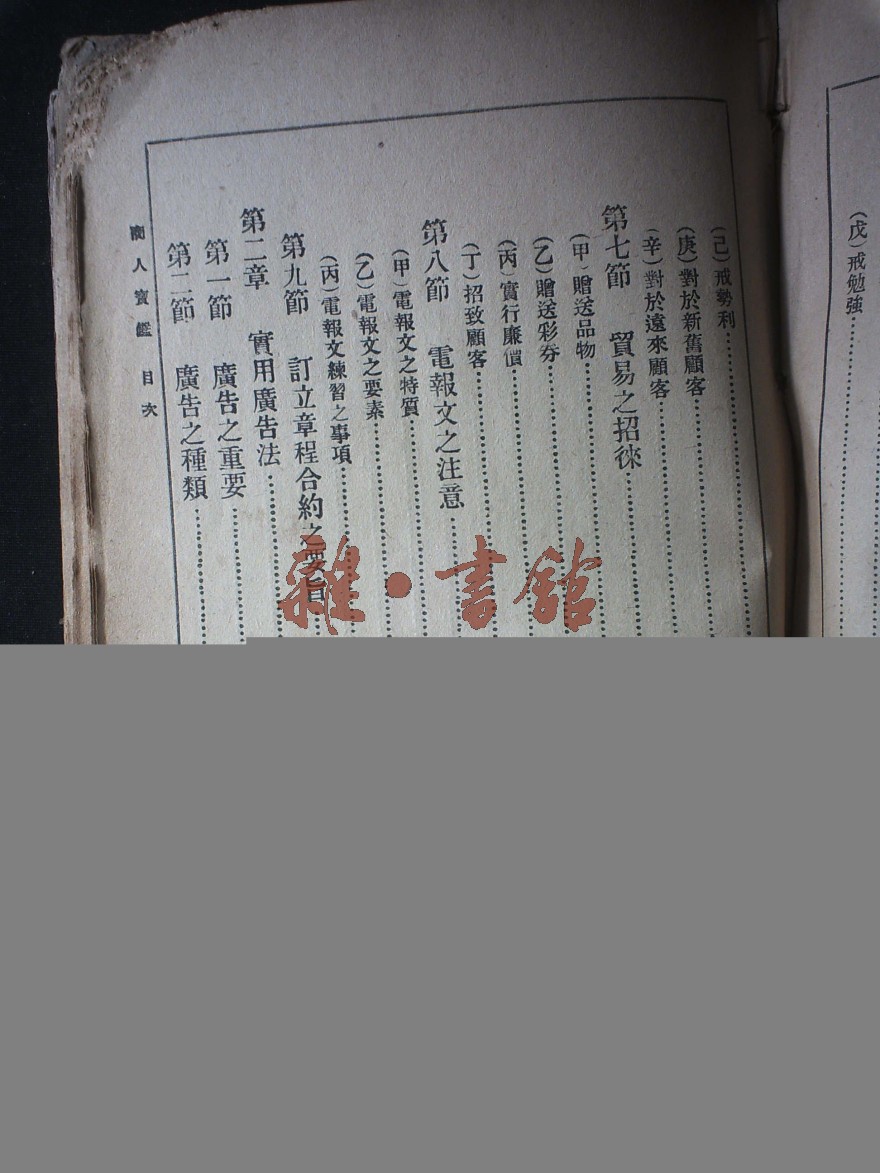 (戊)戒勉強
(己)戒勢利
(庚)對於新舊顧客
(辛)對於遠來顧客
第七節 貿易之招徠
(甲)贈送品物
(乙)贈送彩券
(丙)實行廉價
(丁)招致顧客
第八節 電報文之注意
(甲)電報文之特質
(乙)電報文之要素
(丙)電報文練習之事項
第九節 訂立章程合約之要旨
第二章 實用廣告法
第一節 廣告之重要
第二節 廣告之種類
商人寶鑑 目次
雜·書館